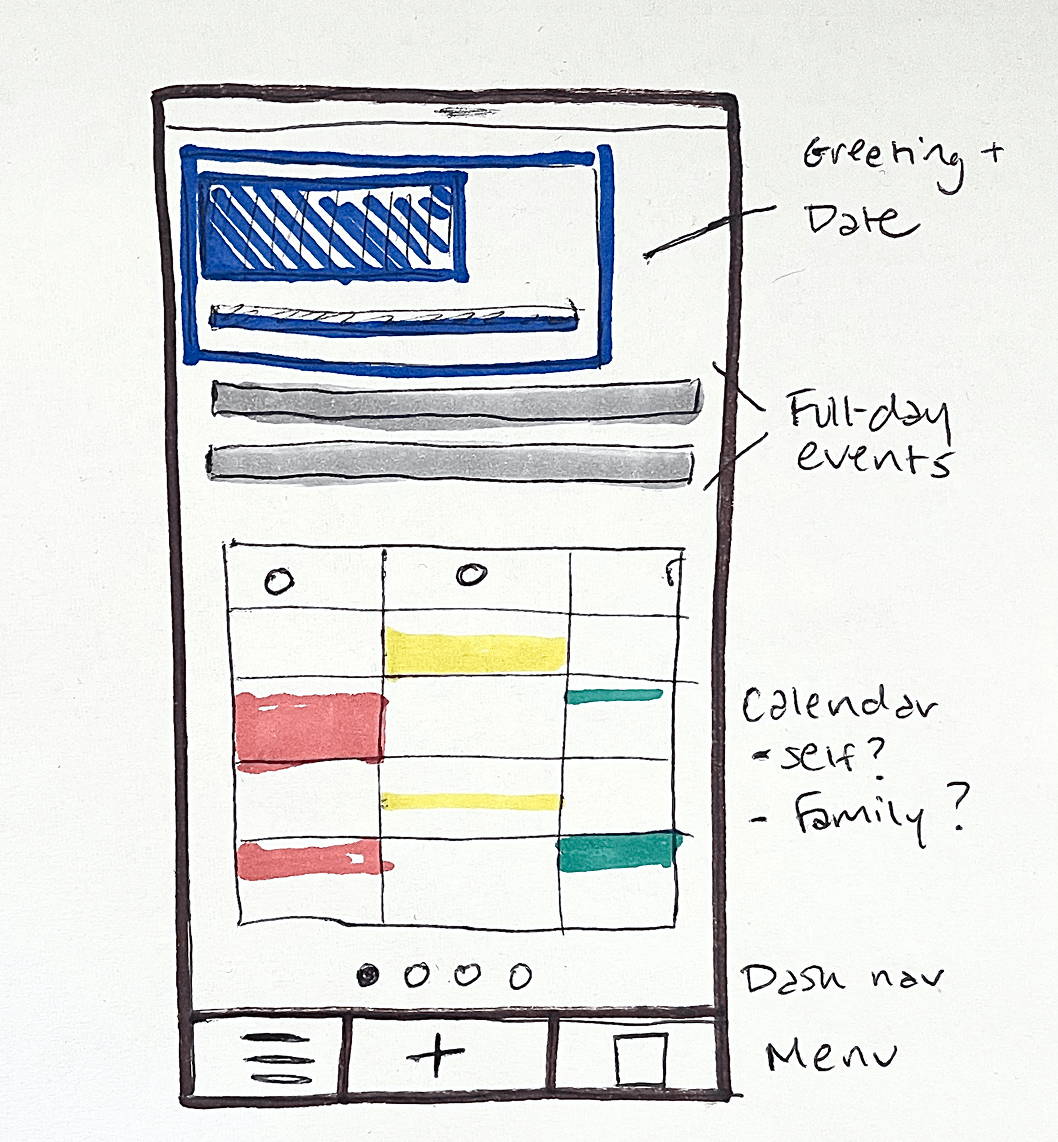 Greeting +
Date
Full-day
events
Calendar
- self?
- Family?
Dash nav
Menu